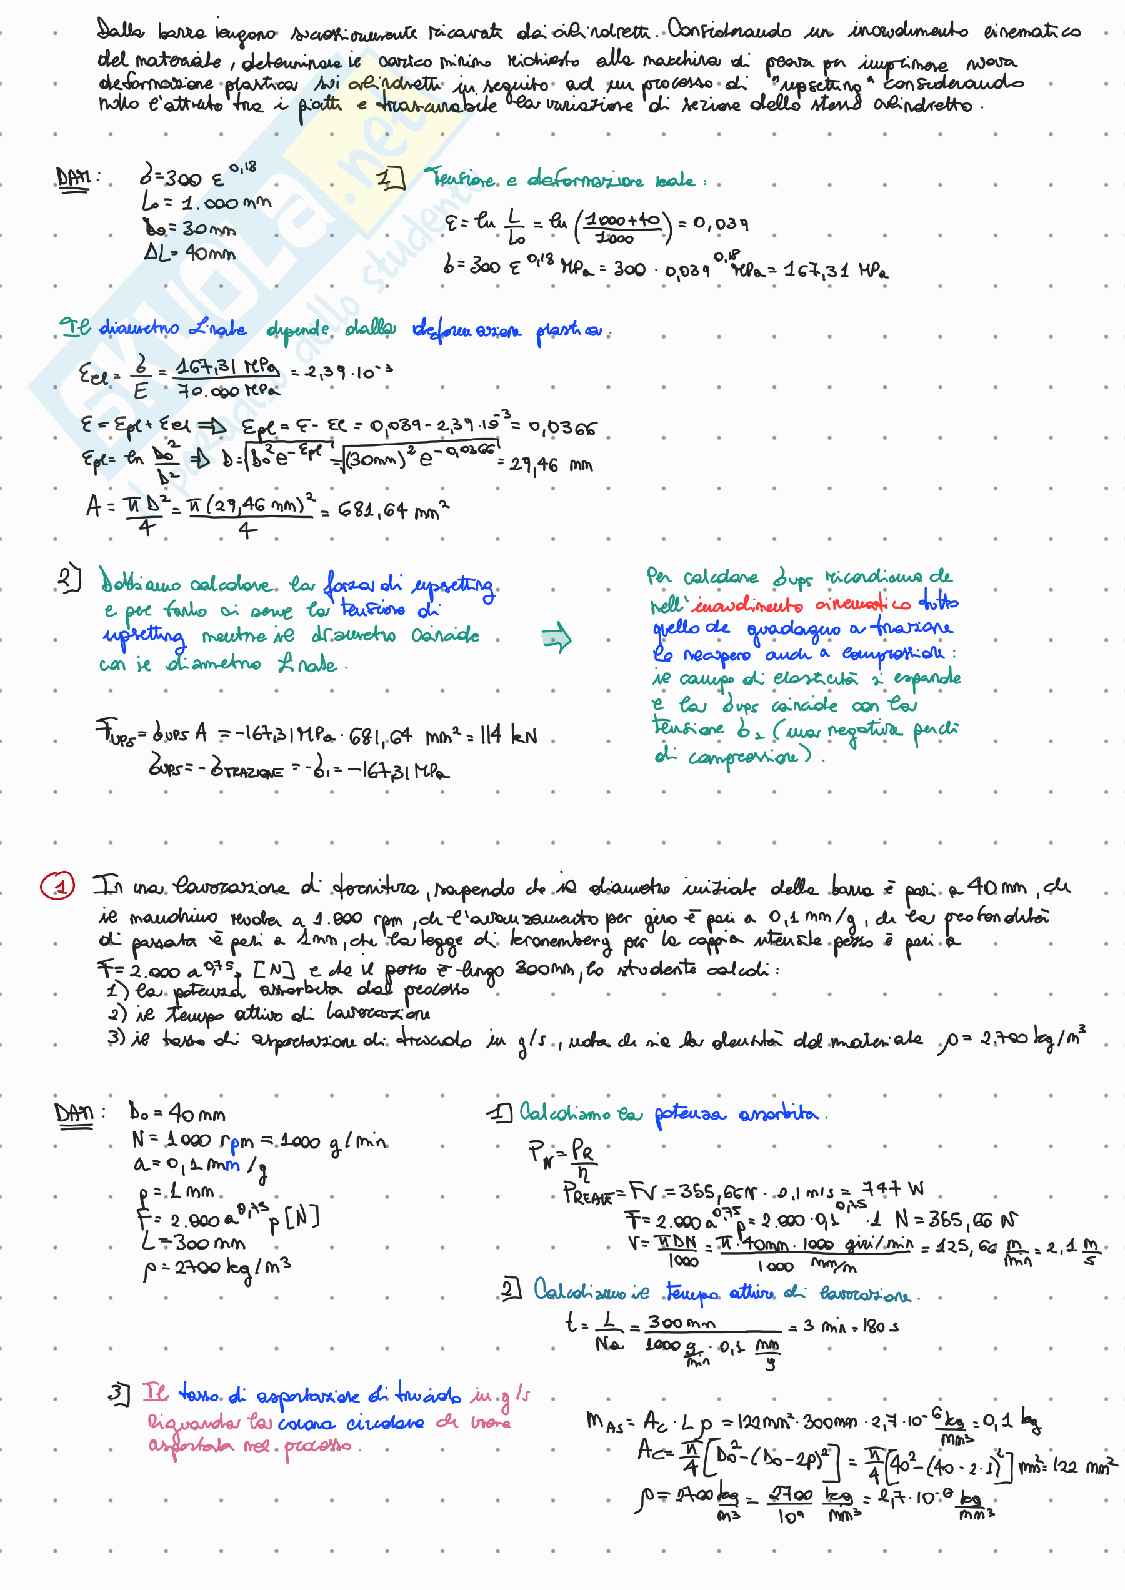 Dalla barra vengono successivamente ricavati dei cilindretti. Considerando un incrudimento cinematico
del materiale, determinare il carico minimo richiesto alla macchina di prova per imprimere nuova
deformazione plastica sui cilindretti in seguito ad un processo di "upsetting" considerando
nullo l'attrito tra i piatti e trascurabile la variazione di sezione dello stesso cilindretto.
DATI: σ=300 ε^0,18
L₀ = 1.000 mm
D₀ = 30mm
ΔL = 40mm
1] Tensione e deformazione reale:
ε = ln L/L₀ = ln (1000+40/1000) = 0,039
σ = 300 ε^0,18 MPa = 300 · 0,039^0,18 MPa = 167,31 MPa
Il diametro finale dipende dalla deformazione plastica:
εel = σ/E = 167,31 MPa/70.000 MPa = 2,39·10⁻³
ε = εpl + εel ⇒ εpl = ε - εel = 0,039 - 2,39·10⁻³ = 0,0366
εpl = ln D₀²/D² ⇒ D=√D₀² e^-εpl = √(30mm)² e^-0,0366 = 29,46 mm
A = πD²/4 = π(29,46 mm)²/4 = 681,64 mm²
2] Dobbiamo calcolare la forza di upsetting
e per farlo ci serve la tensione di
upsetting mentre il diametro coincide
con il diametro finale.
⇒
Per calcolare σups ricordiamo che
nell'incrudimento cinematico tutto
quello che guadagno a trazione
lo recupero anche a compressione:
il campo di elasticità si espande
e la σups coincide con la
tensione σ₁ (ma negativa perché
di compressione).
Fups = σups A = -167,31 MPa · 681,64 mm² = 114 kN
σups = -σTRAZIONE = -σ₁ = -167,31 MPa
1 In una lavorazione di tornitura, sapendo che il diametro iniziale della barra è pari a 40 mm, che
il mandrino ruota a 1.000 rpm, che l'avanzamento per giro è pari a 0,1 mm/g, che la profondità
di passata è pari a 1mm, che la legge di kronemberg per la coppia utensile pezzo è pari a
F = 2.000 a^0,75 [N] e che il pezzo è lungo 300mm, lo studente calcoli:
1) la potenza assorbita dal processo
2) il tempo attivo di lavorazione
3) il tasso di asportazione di truciolo in g/s, nota che sia la densità del materiale ρ = 2.700 kg/m³
DATI: D₀ = 40 mm
N = 1000 rpm = 1000 g/min
a = 0,1 mm/g
p = 1 mm
F = 2.000 a^0,75 p [N]
L = 300 mm
ρ = 2700 kg/m³
1] Calcoliamo la potenza assorbita.
PN = PR/η
PREALE = FV = 355,66N · 2,1 m/s = 747 W
F = 2.000 a^0,75 p = 2.000 · 0,1^0,75 · 1 N = 355,66 N
V = πDN/1000 = π·40mm·1000 giri/min/1000 mm/m = 125,66 m/min = 2,1 m/s
2] Calcoliamo il tempo attivo di lavorazione.
t = L/Na = 300 mm/1000 g/min · 0,1 mm/g = 3 min = 180 s
3] Il tasso di asportazione di truciolo in g/s
riguarda la corona circolare che viene
asportata nel processo.
mAS = Ac · L ρ = 122 mm² · 300mm · 2,7·10⁻⁶ kg/mm³ = 0,1 kg
Ac = π/4 [D₀² - (D₀ - 2p)²] = π/4 [40² - (40 - 2·1)²] mm² = 122 mm²
ρ = 2700 kg/m³ = 2700/10⁹ kg/mm³ = 2,7·10⁻⁶ kg/mm³